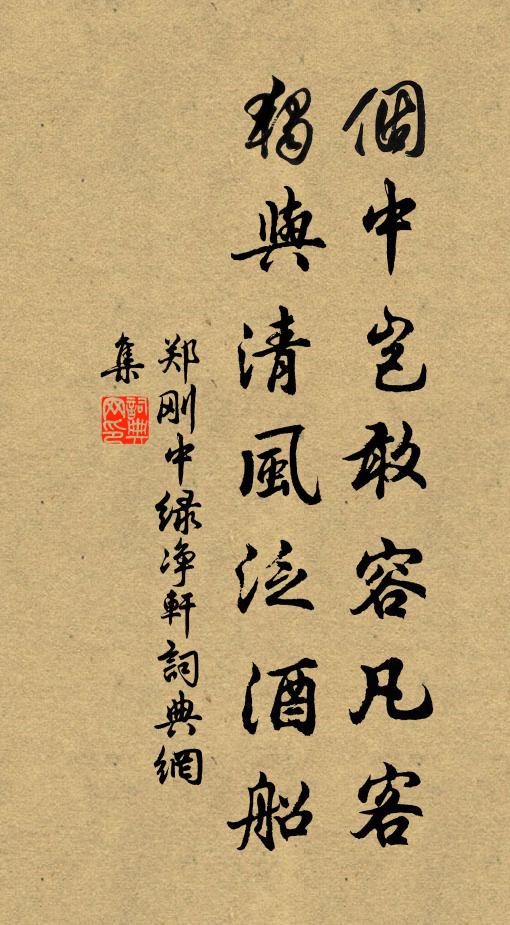 個中岂敢容凡客
獨與清風泛酒船
郑刚中绿净軒詞典網
集
詞典网印